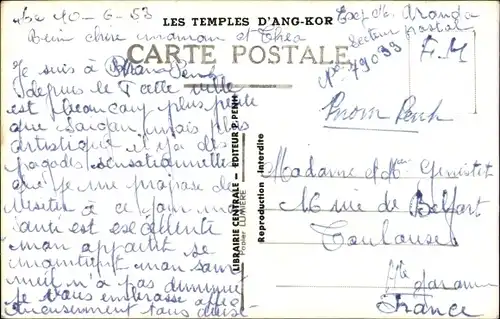 Le 10-6-53
LES TEMPLES D'ANG-KOR
Bien chère maman et Théo
CARTE POSTALE
Je suis à Phnom Penh
depuis le 7 cette ville
est beaucoup plus petite
que Saigon mais plus
artistique il y a des
pagodes sensationnelles
que je me propose de
visiter à ce jour ma
santé est excellente
mon appétit se
maintient mon som
meil n'a pas diminué
Je vous embrasse affec
tueusement tous deux
LIBRAIRIE CENTRALE - ÉDITEUR P. PENH
Papier LUMIERE
Reproduction Interdite
Exp. Aranda
Secteur postal
N° 79033
F.M
Pnom Penh
Madame et Mr
rue de Belfort
Toulouse
Hte Garonne
France